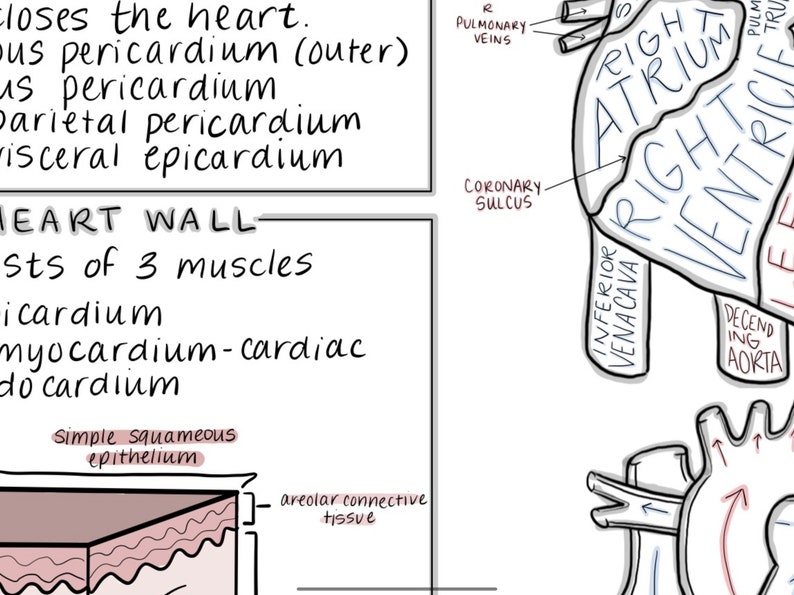 closes the heart.
ous pericardium (outer)
us pericardium
parietal pericardium
visceral epicardium
HEART WALL
sts of 3 muscles
icardium
myocardium-cardiac
docardium
simple squameous
epithelium
areolar connective
tissue
R
PULMONARY
VEINS
CORONARY
SULCUS
S
RIGHT
ATRIUM
PULM
TRU
RIGHT
VENTRICLE
LE
INFERIOR
VENA CAVA
DECEND
ING
AORTA